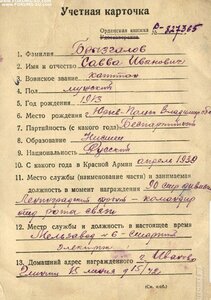 Учетная карточка
Орденская книжка № Р-227305
1. Фамилия Брызгалов
2. Имя и отчество Савва Иванович
3. Воинское звание капитан
4. Пол мужской
5. Год рождения 1913
6. Место рождения
7. Партийность (с какого года) Беспартийный
8. Образование Низшее
9. Национальность Русский
10. С какого года в Красной Армии апреля 1939
11. Место службы (наименование части) и занимаемая
должность в момент награждения 90 стр дивизия
Ленинградский фронт - командир
роты связи
12. Место службы и должность в настоящее время
электрик
13. Домашний адрес награжденного г. Иваново
(См. след.)